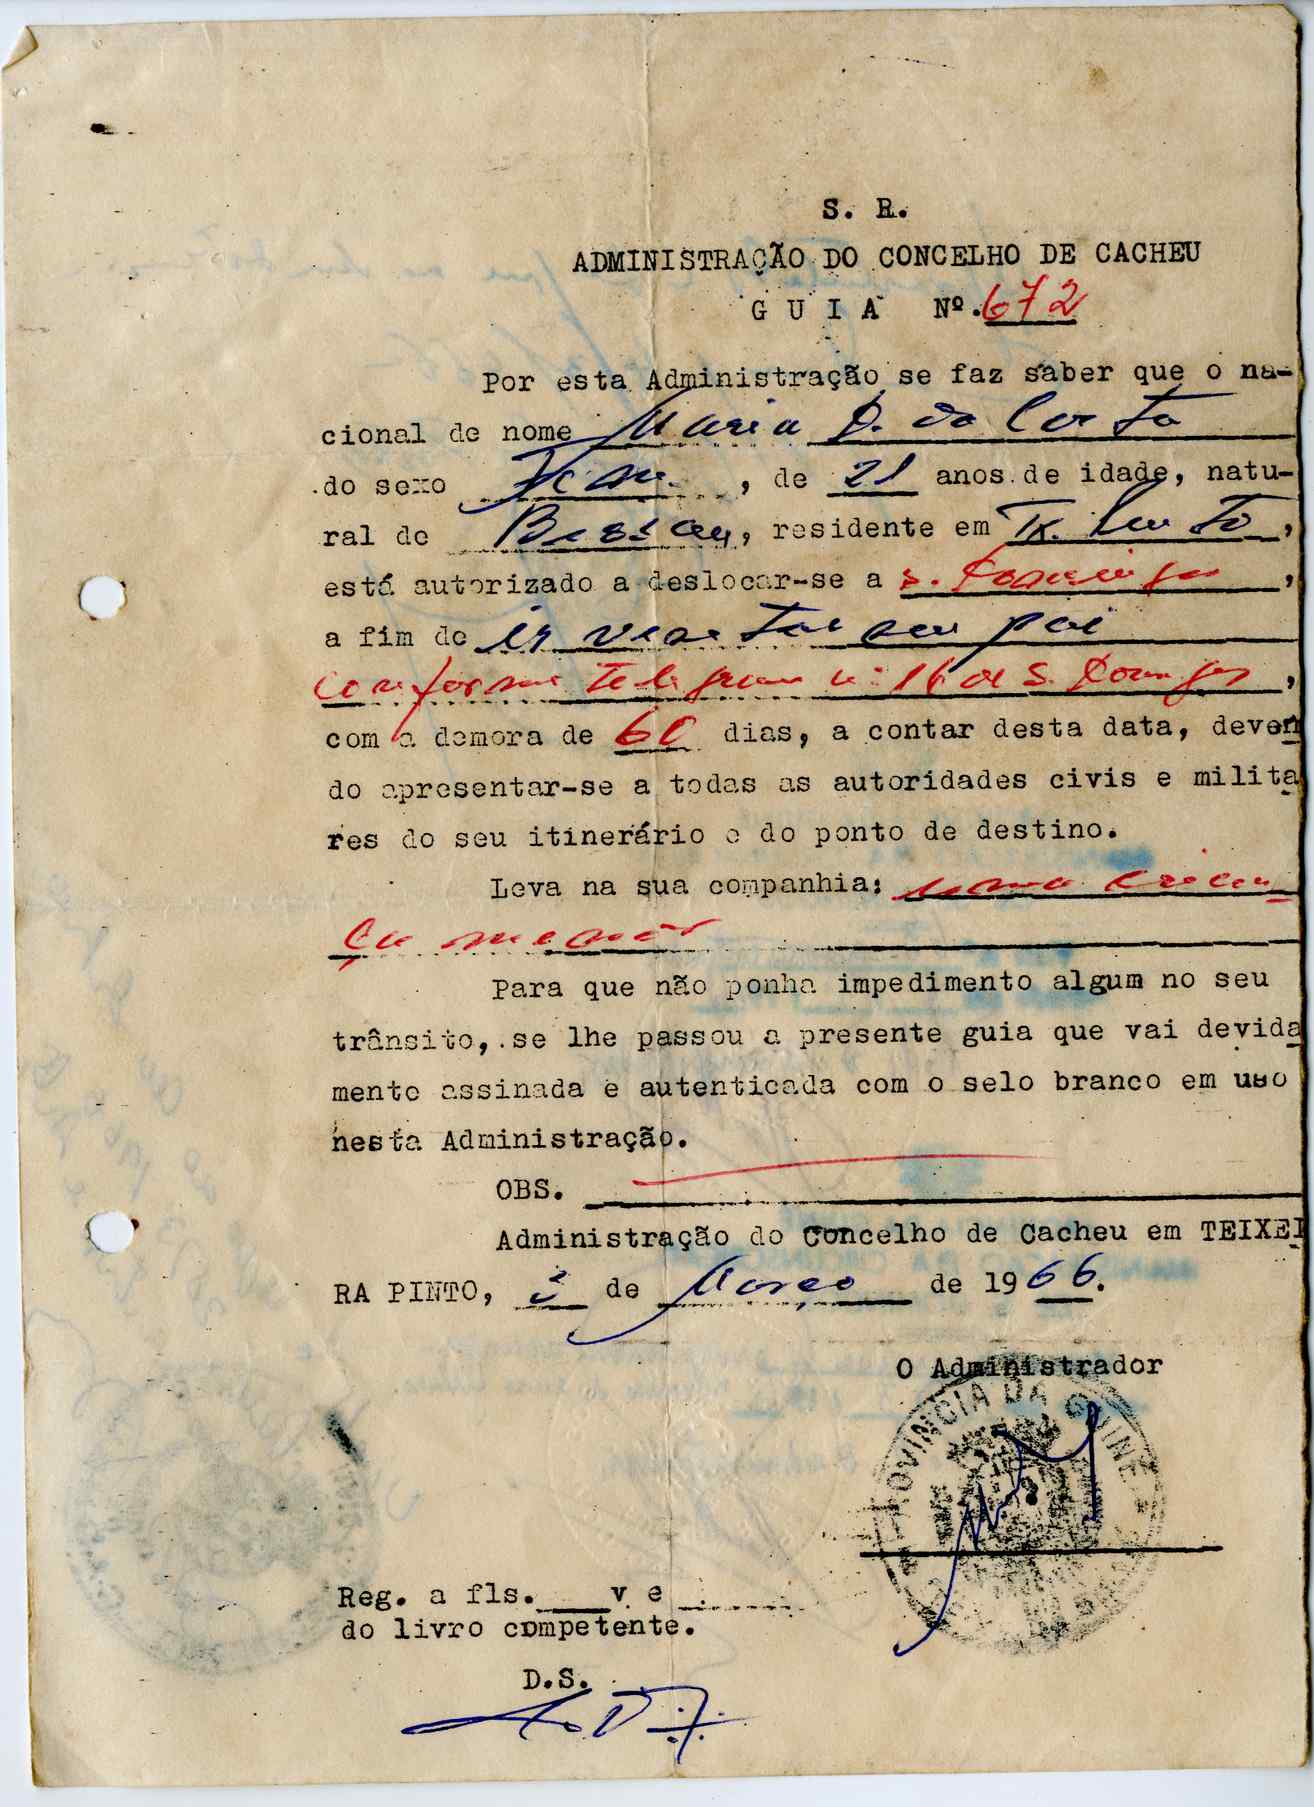 S. R.
ADMINISTRAÇÃO DO CONCELHO DE CACHEU
G U I A Nº. 672
Por esta Administração se faz saber que o na-
cional de nome Maria D. da Costa
do sexo Fem. , de 21 anos de idade, natu-
ral de Bissau, residente em Tx. Pinto,
está autorizado a deslocar-se a S. Domingos ,
a fim de ir visitar seu pai
conforme telegrama nº 16 de S. Domingos ,
com a demora de 60 dias, a contar desta data, deven
do apresentar-se a todas as autoridades civis e milita
res do seu itinerário e do ponto de destino.
Leva na sua companhia: uma crian
ça menor
Para que não ponha impedimento algum no seu
trânsito, se lhe passou a presente guia que vai devida
mente assinada e autenticada com o selo branco em uso
nesta Administração.
OBS.
Administração do Concelho de Cacheu em TEIXEI
RA PINTO, 3 de Março de 1966.
O Administrador
PROVINCIA DA GUINE
Reg. a fls. ___ v e
do livro competente.
D.S.